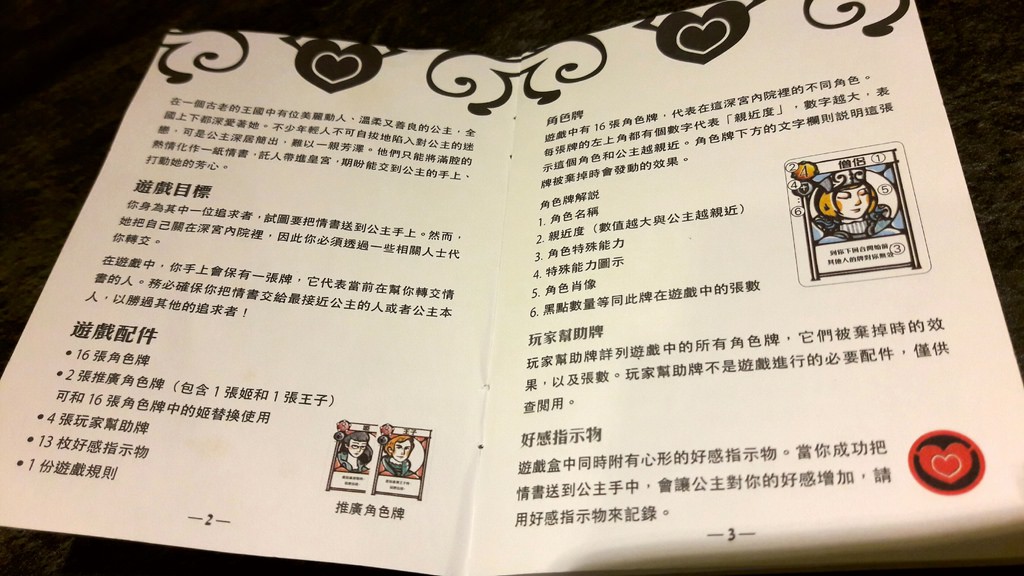 在一個古老的王國中有位美麗動人，溫柔又善良的公主，全
國上下都深愛著她。不少年輕人不可自拔地陷入對公主的迷
戀，可是公主深居簡出，難以一親芳澤。他們只能將滿腔的
熱情化作一紙情書，託人帶進皇宮，期盼能交到公主的手上、
打動她的芳心。
遊戲目標
你身為其中一位追求者，試圖要把情書送到公主手上。然而，
她把自己關在深宮內院裡，因此你必須透過一些相關人士代
你轉交。
在遊戲中，你手上會保有一張牌，它代表當前在幫你轉交情
書的人。務必確保你把情書交給最接近公主的人或者公主本
人，以勝過其他的追求者！
遊戲配件
•16 張角色牌
•2 張推廣角色牌（包含 1 張姬和 1 張王子）
可和 16 張角色牌中的姬替換使用
•4 張玩家幫助牌
•13 枚好感指示物
•1 份遊戲規則
推廣角色牌
—2—
角色牌
遊戲中有 16 張角色牌，代表在這深宮內院裡的不同角色。
每張牌的左上角都有個數字代表「親近度」，數字越大，表
示這個角色和公主越親近。角色牌下方的文字欄則說明這張
牌被棄掉時會發動的效果。
角色牌解說
1. 角色名稱
2. 親近度（數值越大與公主越親近）
3. 角色特殊能力
4. 特殊能力圖示
5. 角色肖像
6. 黑點數量等同此牌在遊戲中的張數
僧侶 ①
②
④
⑤
⑥
到你下回合開始前
其他人的牌對你無效 ③
玩家幫助牌
玩家幫助牌詳列遊戲中的所有角色牌，它們被棄掉時的效
果，以及張數。玩家幫助牌不是遊戲進行的必要配件，僅供
查閱用。
好感指示物
遊戲盒中同時附有心形的好感指示物。當你成功把
情書送到公主手中，會讓公主對你的好感增加，請
用好感指示物來記錄。
—3—